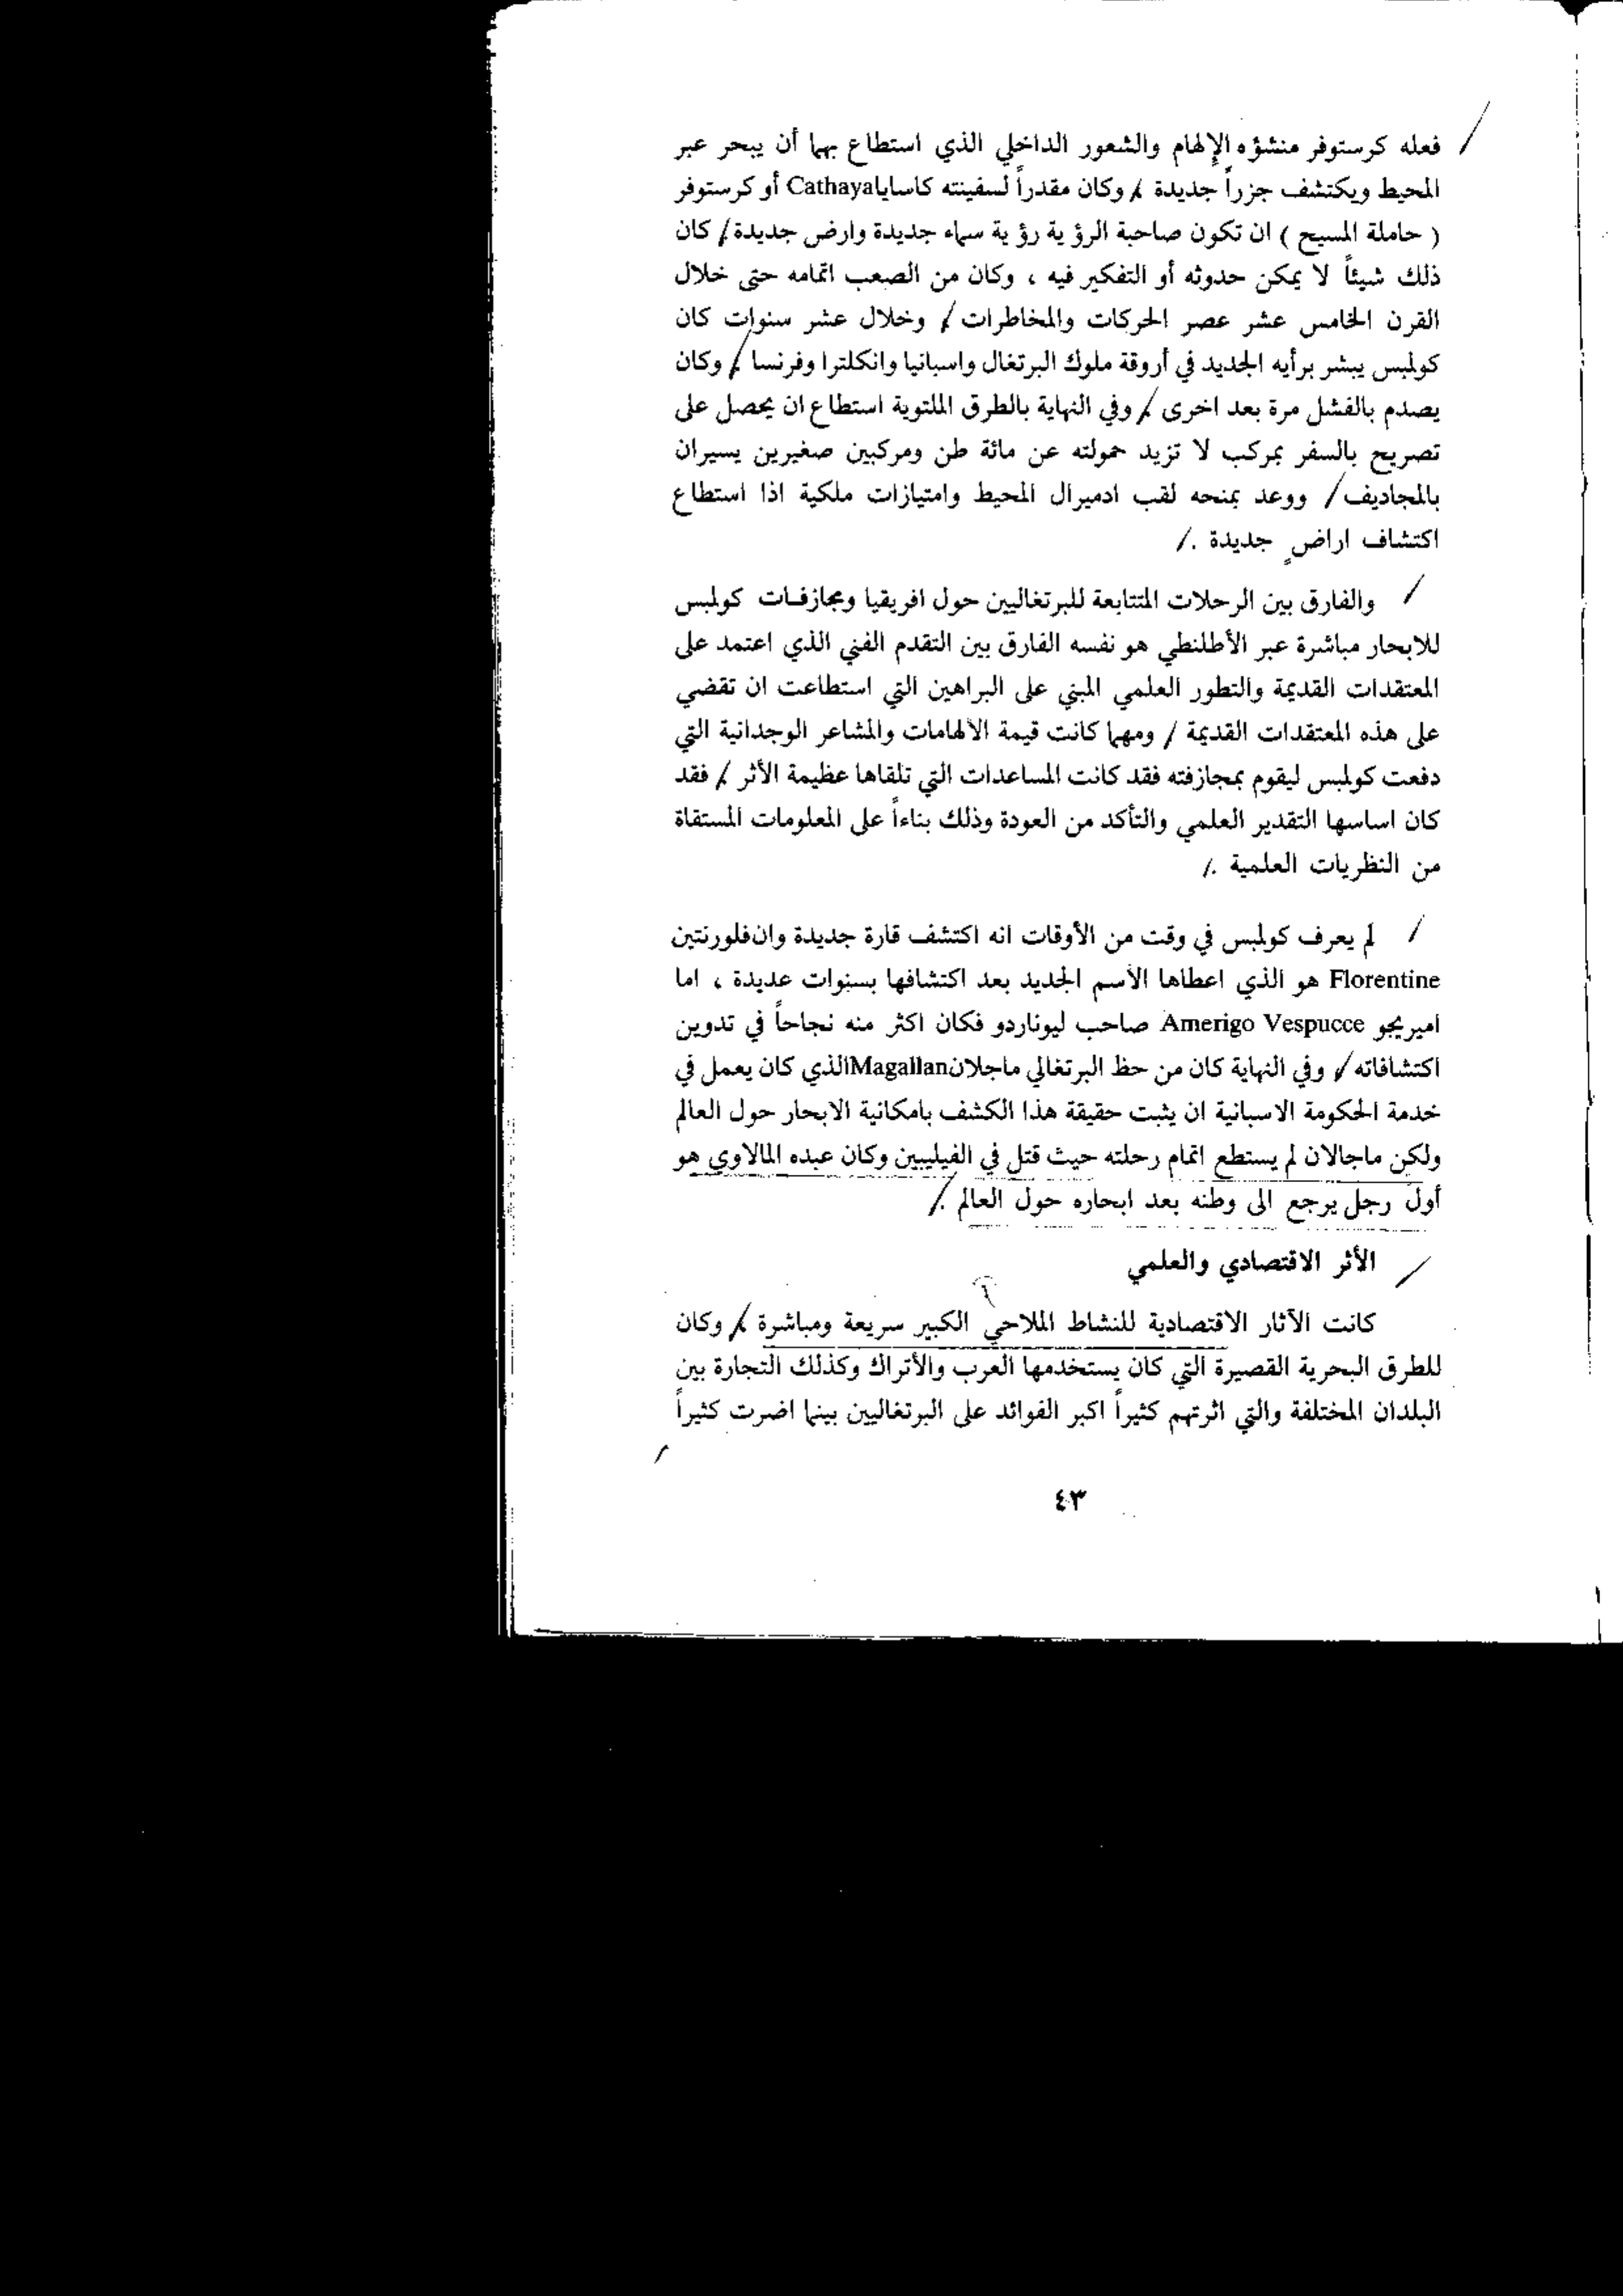 فعله كرستوفر منشؤه الإلهام والشعور الداخلي الذي استطاع بهما أن يبحر عبر
المحيط ويكتشف جزراً جديدة / وكان مقدراً لسفينته كاساياCathaya أو كرستوفر
( حاملة المسيح ) ان تكون صاحبة الرؤية رؤية سماء جديدة وارض جديدة / كان
ذلك شيئاً لا يمكن حدوثه أو التفكير فيه ، وكان من الصعب اتمامه حتى خلال
القرن الخامس عشر عصر الحركات والمخاطرات / وخلال عشر سنوات كان
كولمبس يبشر برأيه الجديد في أروقة ملوك البرتغال واسبانيا وانكلترا وفرنسا / وكان
يصدم بالفشل مرة بعد اخرى / وفي النهاية بالطرق الملتوية استطاع ان يحصل على
تصريح بالسفر بمركب لا تزيد حمولته عن مائة طن ومركبين صغيرين يسيران
بالمجاديف / ووعد بمنحه لقب ادميرال المحيط وامتيازات ملكية اذا استطاع
اكتشاف اراضٍ جديدة . /
/ والفارق بين الرحلات المتتابعة للبرتغاليين حول افريقيا ومجازفات كولمبس
للابحار مباشرة عبر الأطلنطي هو نفسه الفارق بين التقدم الفني الذي اعتمد على
المعتقدات القديمة والتطور العلمي المبني على البراهين التي استطاعت ان تقضي
على هذه المعتقدات القديمة / ومهما كانت قيمة الالهامات والمشاعر الوجدانية التي
دفعت كولمبس ليقوم بمجازفته فقد كانت المساعدات التي تلقاها عظيمة الأثر / فقد
كان اساسها التقدير العلمي والتأكد من العودة وذلك بناءاً على المعلومات المستقاة
من النظريات العلمية . /
/ لم يعرف كولمبس في وقت من الأوقات انه اكتشف قارة جديدة وان فلورنتين
Florentine هو الذي اعطاها الأسم الجديد بعد اكتشافها بسنوات عديدة ، اما
اميريجو Amerigo Vespucce صاحب ليوناردو فكان اكثر منه نجاحاً في تدوين
اكتشافاته / وفي النهاية كان من حظ البرتغالي ماجلانMagallanالذي كان يعمل في
خدمة الحكومة الاسبانية ان يثبت حقيقة هذا الكشف بامكانية الابحار حول العالم
ولكن ماجالان لم يستطع اتمام رحلته حيث قتل في الفيليبين وكان عبده المالاوي هو
أول رجل يرجع الى وطنه بعد ابحاره حول العالم . /
/ الأثر الاقتصادي والعلمي
كانت الآثار الاقتصادية للنشاط الملاحي الكبير سريعة ومباشرة / وكان
للطرق البحرية القصيرة التي كان يستخدمها العرب والأتراك وكذلك التجارة بين
البلدان المختلفة والتي اثرتهم كثيراً اكبر الفوائد على البرتغاليين بينما اضرت كثيراً
٤٣